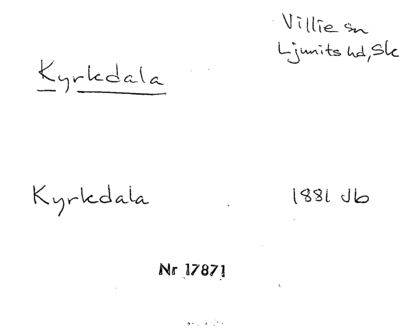 Villie sn
Ljunits hd, Sk
Kyrkdala
Kyrkdala 1881 Jb
Nr 17871